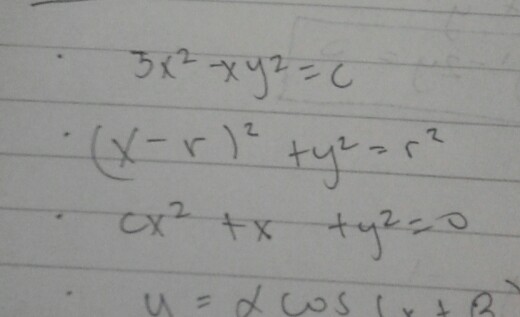 · 3x² - xy² = c
· (x - r)² + y² = r²
· cx² + x + y² = 0
· y = α cos (x + β)